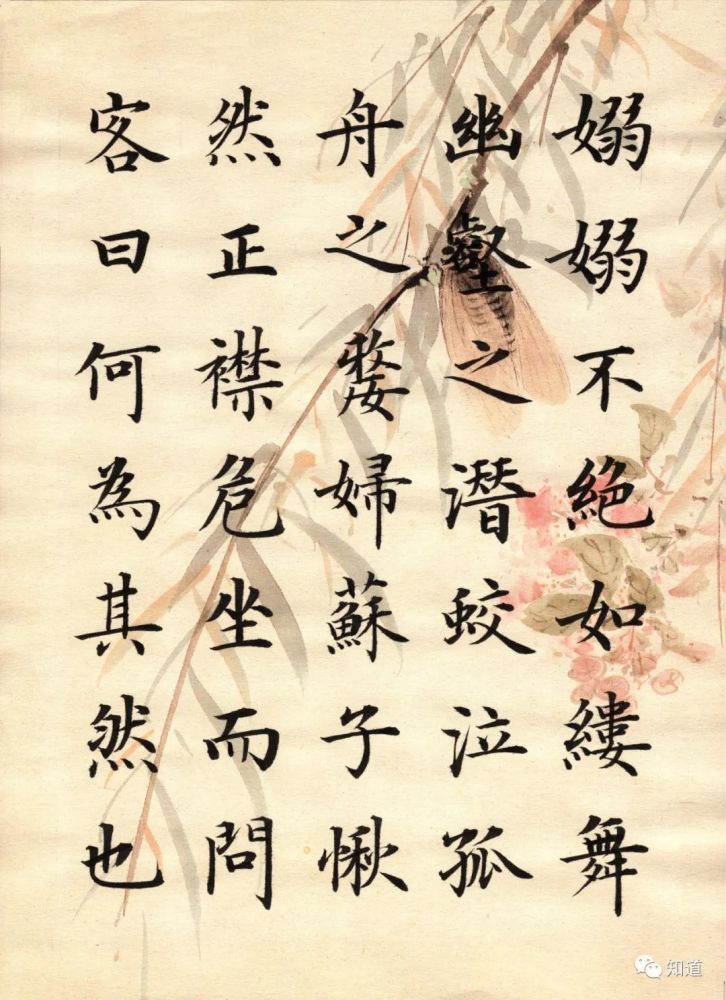 嫋嫋不絶如縷舞
幽壑之潛蛟泣孤
舟之嫠婦蘇子愀
然正襟危坐而問
客曰何為其然也
知道